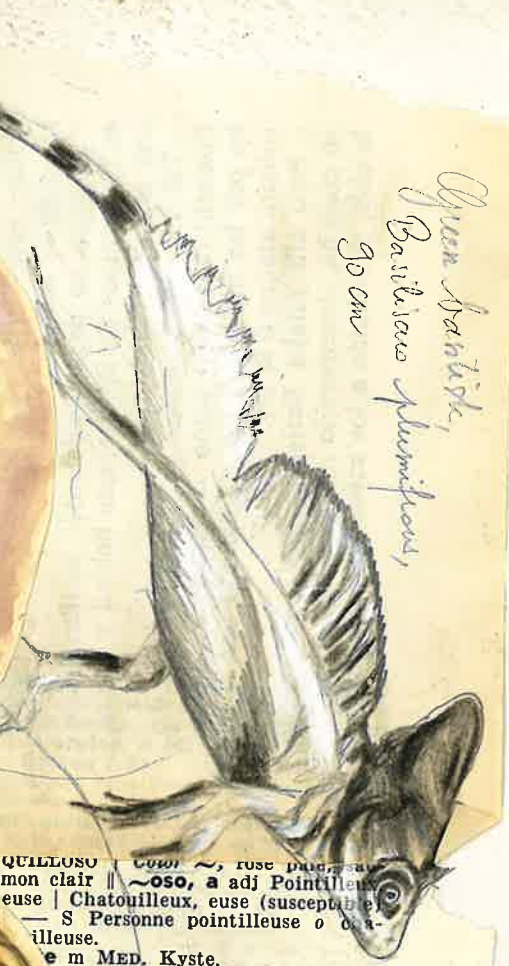 Green basilisk,
Basiliscus plumifrons,
90 cm
QUILLOSO | Color ~, rose pâle, sau-
mon clair || ~oso, a adj Pointilleux
euse | Chatouilleux, euse (susceptible)
— S Personne pointilleuse o cha-
illeuse.
e m MED. Kyste.